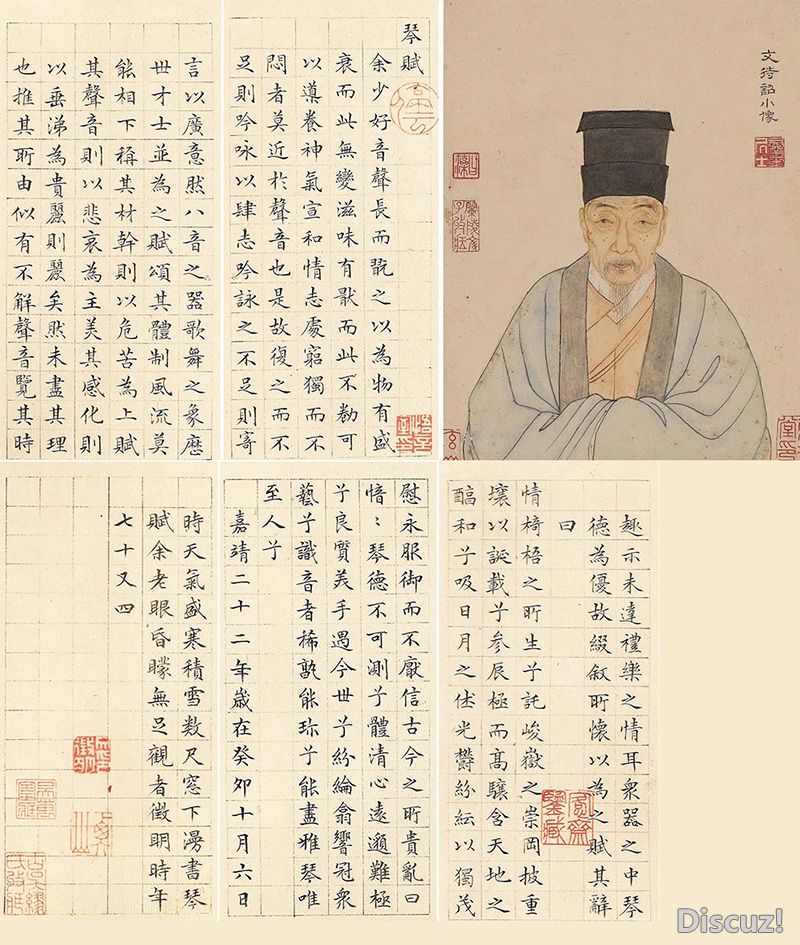 文待詔小像
琴賦
余少好音聲長而翫之以為物有盛
衰而此無變滋味有猒而此不勌可
以導養神氣宣和情志處窮獨而不
悶者莫近於聲音也是故復之而不
足則吟咏以肆志吟詠之不足則寄
言以廣意然八音之器歌舞之象歷
世才士並為之賦頌其體制風流莫
能相下稱其材幹則以危苦為上賦
其聲音則以悲哀為主美其感化則
以垂涕為貴麗則麗矣然未盡其理
也推其所由似有不解聲音覽其時
趣示未達禮樂之情耳衆器之中琴
德為優故綴叙所懷以為之賦其辭
曰
情椅梧之所生兮託峻嶽之崇岡披重
壤以誕載兮参辰極而高驤含天地之
醕和兮吸日月之休光鬱紛紜以獨茂
慰永服御而不厭信古今之所貴亂曰
愔〻琴德不可測兮體清心遠邈難極
兮良質美手遇今世兮紛綸翕響冠衆
藝兮識音者稀孰能珎兮能盡雅琴唯
至人兮
嘉靖二十二年歲在癸卯十月六日
時天氣盛寒積雪数尺窓下漫書琴
賦余老眼昏矇無足觀者徵明時年
七十又四
Discuz!